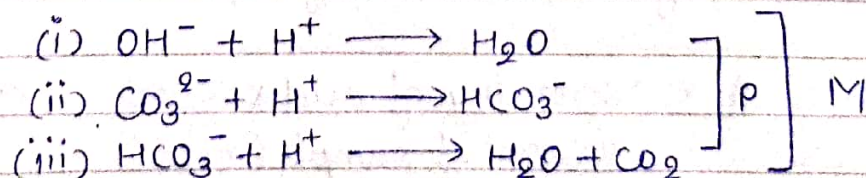 (i) OH⁻ + H⁺ ⟶ H₂O
(ii) CO₃²⁻ + H⁺ ⟶ HCO₃⁻ ] P ] M
(iii) HCO₃⁻ + H⁺ ⟶ H₂O + CO₂